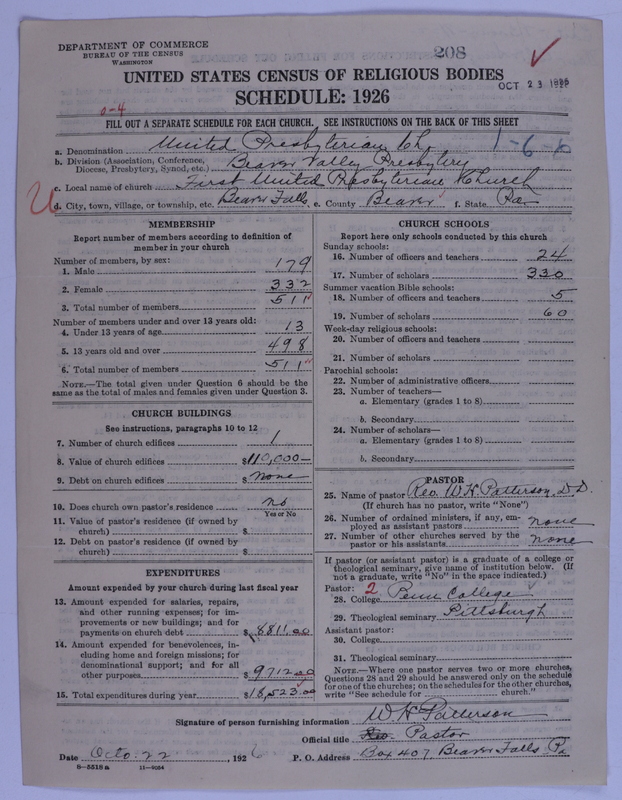 DEPARTMENT OF COMMERCE
BUREAU OF THE CENSUS
WASHINGTON
208
UNITED STATES CENSUS OF RELIGIOUS BODIES
OCT 23 1926
SCHEDULE: 1926
0-4
FILL OUT A SEPARATE SCHEDULE FOR EACH CHURCH. SEE INSTRUCTIONS ON THE BACK OF THIS SHEET
a. Denomination United Presbyterian Ch. 1-6-6
b. Division (Association, Conference, Diocese, Presbytery, Synod, etc.) Beaver Valley Presbytery
c. Local name of church First United Presbyterian Church
d. City, town, village, or township, etc. Beaver Falls, e. County Beaver f. State Pa
MEMBERSHIP
Report number of members according to definition of
member in your church
Number of members, by sex:
1. Male 179
2. Female 332
3. Total number of members 511
Number of members under and over 13 years old:
4. Under 13 years of age 13
5. 13 years old and over 498
6. Total number of members 511
NOTE.—The total given under Question 6 should be the
same as the total of males and females given under Question 3.
CHURCH BUILDINGS
See instructions, paragraphs 10 to 12
7. Number of church edifices 1
8. Value of church edifices $110,000—
9. Debt on church edifices $none
10. Does church own pastor's residence no
Yes or No
11. Value of pastor's residence (if owned by
church) $
12. Debt on pastor's residence (if owned by
church) $
EXPENDITURES
Amount expended by your church during last fiscal year
13. Amount expended for salaries, repairs,
and other running expenses; for im-
provements or new buildings; and for
payments on church debt $8811.00
14. Amount expended for benevolences, in-
cluding home and foreign missions; for
denominational support; and for all
other purposes $9712.00
15. Total expenditures during year $18,523.00
CHURCH SCHOOLS
Report here only schools conducted by this church
Sunday schools:
16. Number of officers and teachers 24
17. Number of scholars 330
Summer vacation Bible schools:
18. Number of officers and teachers 5
19. Number of scholars 60
Week-day religious schools:
20. Number of officers and teachers
21. Number of scholars
Parochial schools:
22. Number of administrative officers
23. Number of teachers—
a. Elementary (grades 1 to 8)
b. Secondary
24. Number of scholars—
a. Elementary (grades 1 to 8)
b. Secondary
PASTOR
25. Name of pastor Rev. W.H. Patterson, D.D.
(If church has no pastor, write "None")
26. Number of ordained ministers, if any, em-
ployed as assistant pastors none
27. Number of other churches served by the
pastor or his assistants none
If pastor (or assistant pastor) is a graduate of a college or
theological seminary, give name of institution below. (If
not a graduate, write "No" in the space indicated.)
Pastor: 2
28. College Penn College
29. Theological seminary Pittsburgh
Assistant pastor:
30. College
31. Theological seminary
NOTE.—Where one pastor serves two or more churches,
Questions 28 and 29 should be answered only on the schedule
for one of the churches; on the schedules for the other churches,
write "See schedule for church."
Signature of person furnishing information W H Patterson
Official title Rev. Pastor
Date Octo. 22, 1926 P. O. Address Box 407 Beaver Falls Pa
8-5518a 11-9054